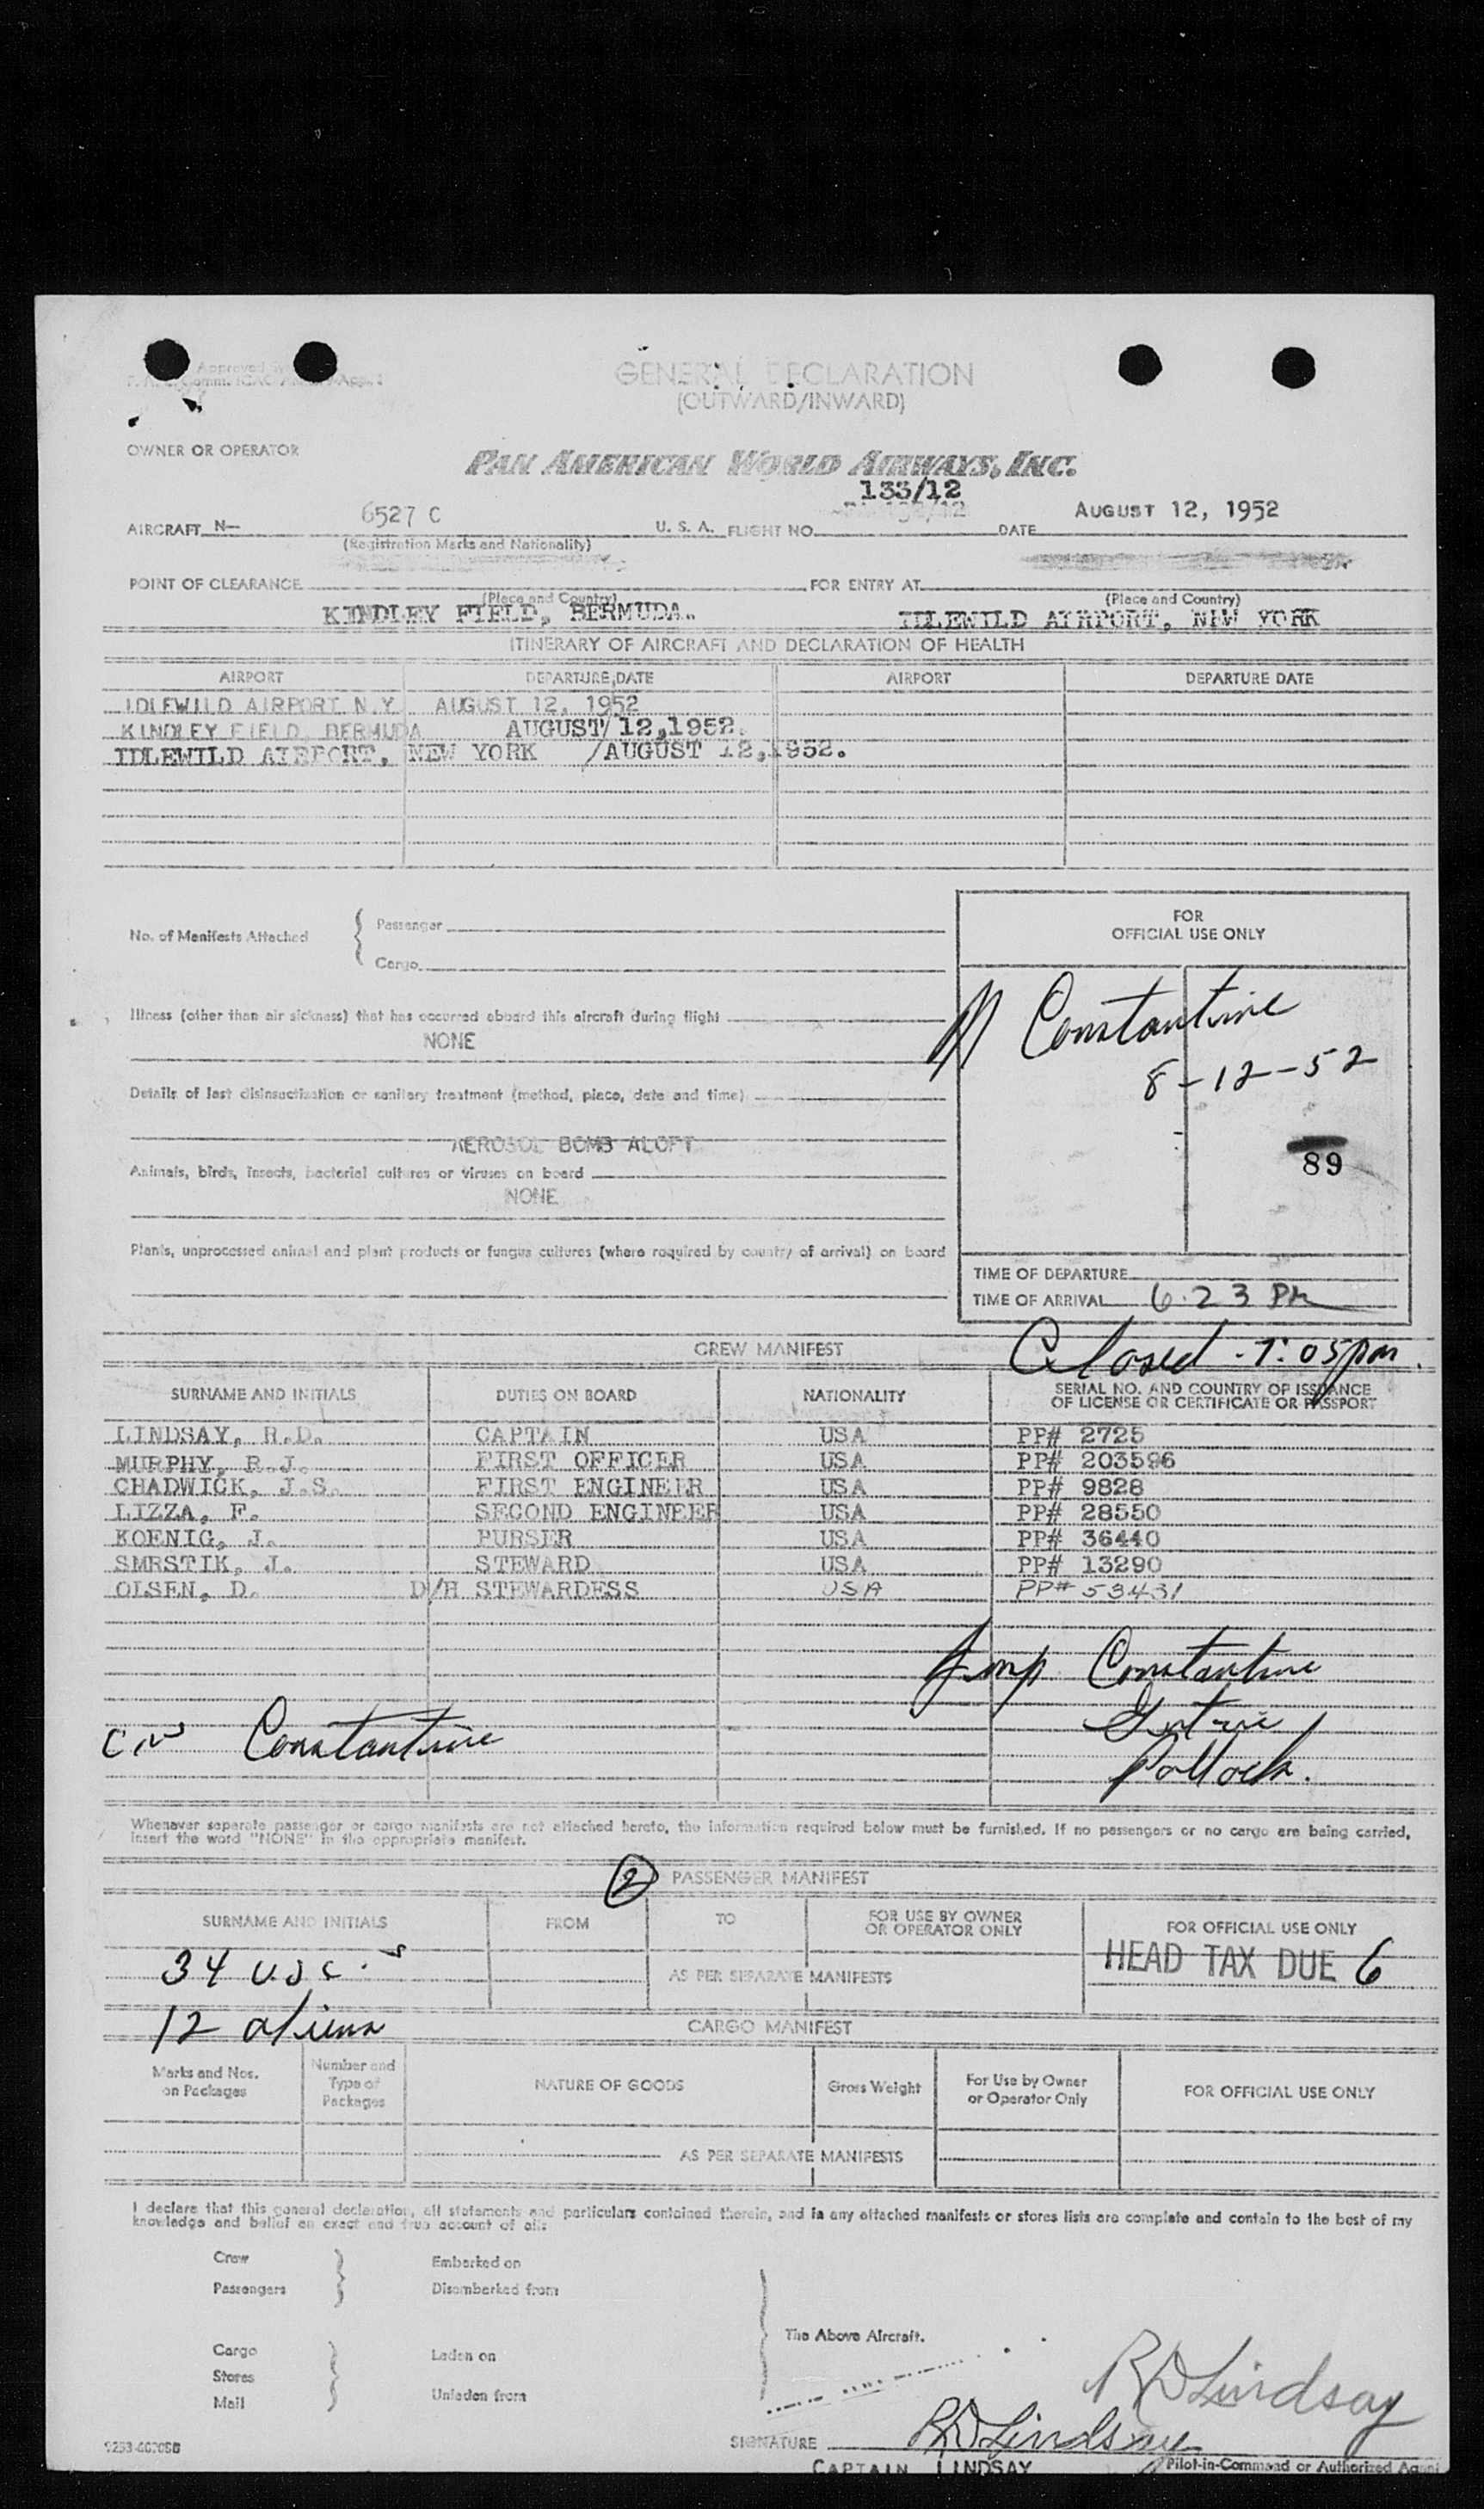 GENERAL DECLARATION
(OUTWARD/INWARD)
OWNER OR OPERATOR
PAN AMERICAN WORLD AIRWAYS, INC.
133/12
AIRCRAFT N- 6527 C U. S. A. FLIGHT NO. DATE AUGUST 12, 1952
(Registration Marks and Nationality)
POINT OF CLEARANCE FOR ENTRY AT
(Place and Country) (Place and Country)
KINDLEY FIELD, BERMUDA. IDLEWILD AIRPORT, NEW YORK
ITINERARY OF AIRCRAFT AND DECLARATION OF HEALTH
AIRPORT DEPARTURE DATE AIRPORT DEPARTURE DATE
IDLEWILD AIRPORT N.Y. AUGUST 12, 1952
KINDLEY FIELD, BERMUDA AUGUST/12,1952.
IDLEWILD AIRPORT, NEW YORK /AUGUST 12,1952.
No. of Manifests Attached
Passenger
Cargo
FOR
OFFICIAL USE ONLY
Constantine
8-12-52
89
Illness (other than air sickness) that has occurred aboard this aircraft during flight
NONE
Details of last disinsectization or sanitary treatment (method, place, date and time)
AEROSOL BOMB ALOFT
Animals, birds, insects, bacterial cultures or viruses on board
NONE
Plants, unprocessed animal and plant products or fungus cultures (where required by country of arrival) on board
TIME OF DEPARTURE
TIME OF ARRIVAL 6.23 PM
Closed - 7:05pm.
CREW MANIFEST
SURNAME AND INITIALS DUTIES ON BOARD NATIONALITY SERIAL NO. AND COUNTRY OF ISSUANCE
OF LICENSE OR CERTIFICATE OR PASSPORT
LINDSAY, R.D. CAPTAIN USA PP# 2725
MURPHY, R.J. FIRST OFFICER USA PP# 203596
CHADWICK, J.S. FIRST ENGINEER USA PP# 9828
LIZZA, F. SECOND ENGINEER USA PP# 28550
KOENIG, J. PURSER USA PP# 36440
SMRSTIK, J. STEWARD USA PP# 13290
OLSEN, D. D/H STEWARDESS USA PP# 53431
Imp Constantine
Pollock.
Constantine
Whenever separate passenger or cargo manifests are not attached hereto, the information required below must be furnished. If no passengers or no cargo are being carried,
insert the word "NONE" in the appropriate manifest.
2 PASSENGER MANIFEST
SURNAME AND INITIALS FROM TO FOR USE BY OWNER
OR OPERATOR ONLY FOR OFFICIAL USE ONLY
34 USC's AS PER SEPARATE MANIFESTS HEAD TAX DUE 6
12 aliens
CARGO MANIFEST
Marks and Nos.
on Packages
Number and
Type of
Packages
NATURE OF GOODS Gross Weight
For Use by Owner
or Operator Only
FOR OFFICIAL USE ONLY
AS PER SEPARATE MANIFESTS
I declare that this general declaration, all statements and particulars contained therein, and in any attached manifests or stores lists are complete and contain to the best of my
knowledge and belief an exact and true account of all:
Crew Embarked on
Passengers Disembarked from
The Above Aircraft.
Cargo Laden on
Stores
Mail Unladen from
RD Lindsay
SIGNATURE RD Lindsay
CAPTAIN LINDSAY Pilot-in-Command or Authorized Agent